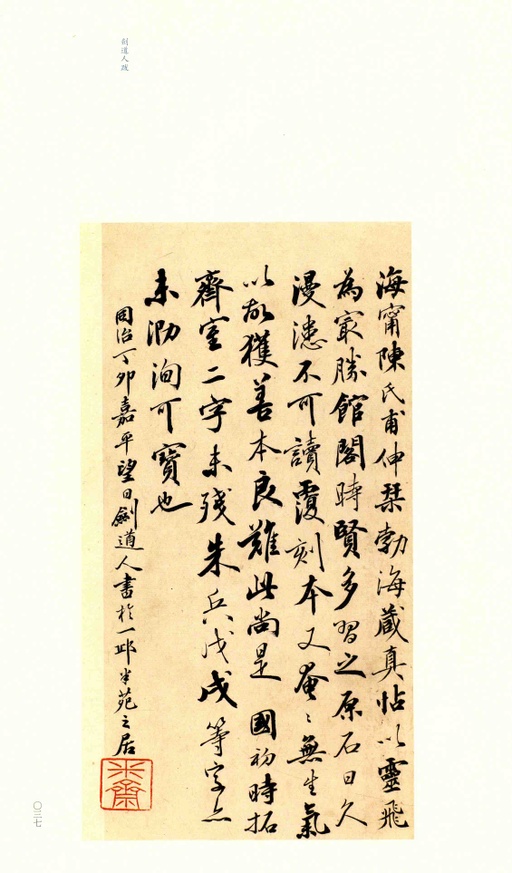 劍道人跋
海甯陳氏甫伸栞勃海藏真帖以靈飛
為冣勝館閣時賢多習之原石日久
漫漶不可讀覆刻本又奄〻無生氣
以故獲善本良難此尚是國初時拓
齊室二字未殘朱兵戊戌等字亦
未泐洵可寶也
同治丁卯嘉平望日劍道人書於一邱半苑之居
〇三七